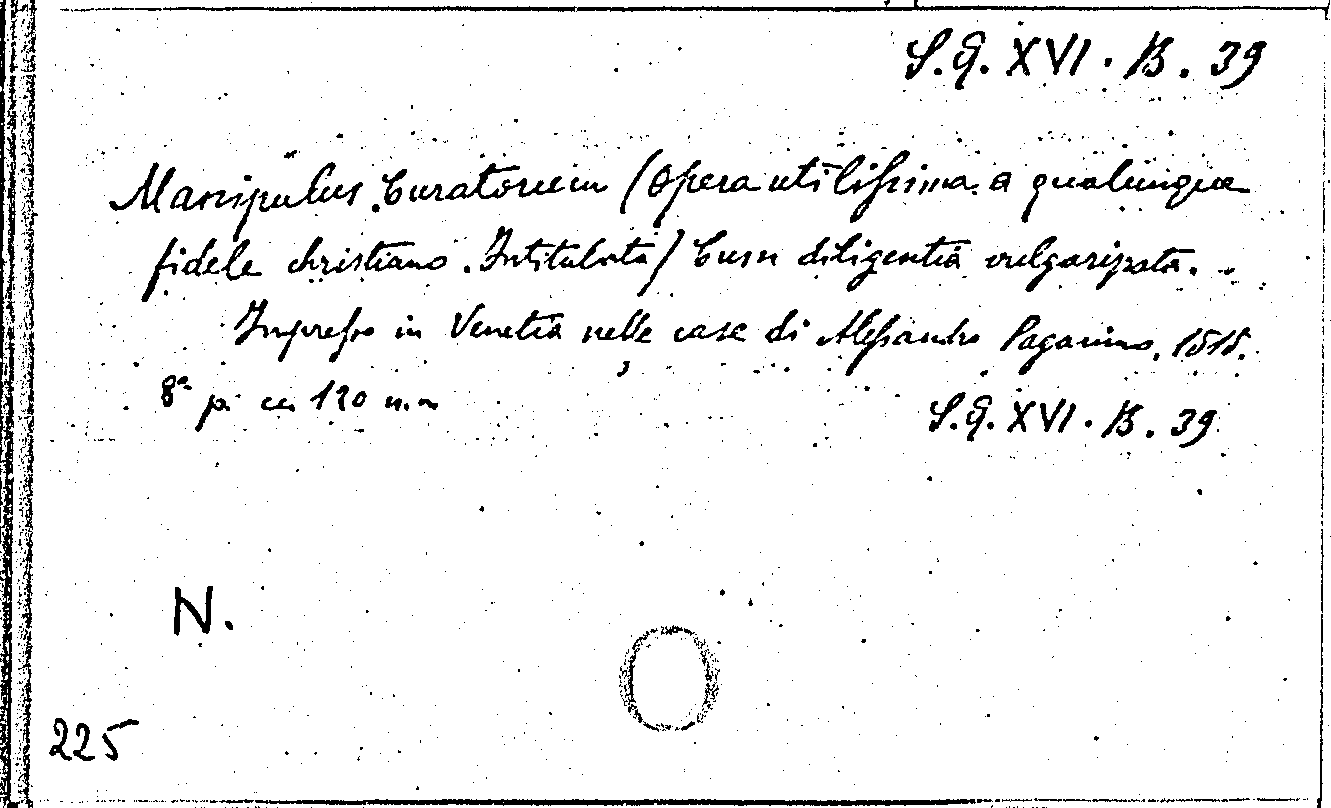 S.Q. XVI. B. 39
Manipulus Curatorum (Opera utilissima a qualunque
fidele christiano. Intitulata) Cum diligentia vulgarizata.
Impresso in Venetia nelle case di Alessandro Paganino, 1515.
8º pi cc. 120 n.n.
S.Q. XVI. B. 39
N.
225